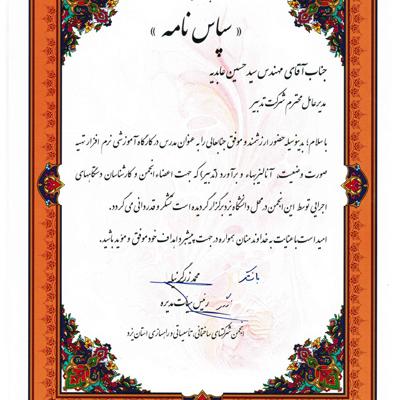 « سپاس نامه »
جناب آقای مهندس سید حسین عابدیه
مدیرعامل محترم شرکت تدبیر
با سلام؛ بدینوسیله حضور ارزشمند و موفق جنابعالی را به عنوان مدرس در کارگاه آموزشی نرم افزار تهیه
صورت وضعیت، آنالیز بهاء و برآورد (تدبیر) که جهت اعضاء انجمن و کارشناسان دستگاههای
اجرایی توسط این انجمن در محل دانشگاه یزد برگزار گردیده است تشکر و قدردانی می گردد.
امید است با عنایت به خداوند منان همواره در جهت پیشبرد اهداف خود موفق و موید باشید.
محمد زرگر نیا
رئیس هیات مدیره
انجمن شرکتهای ساختمانی، تاسیساتی و راهسازی استان یزد